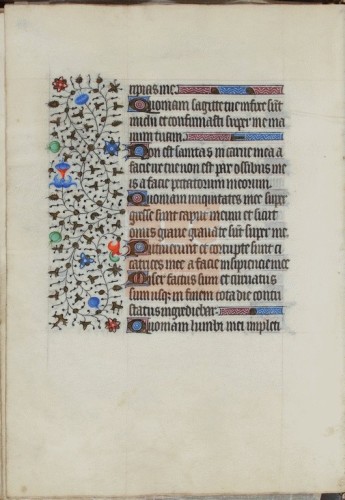 ripias me.
Quoniam sagitte tue infixe sūt
michi et confirmasti super me ma
num tuam.
Non est sanitas in carne mea a
facie ire tue non est pax ossibus me
is a facie peccatorum meorum.
Quoniam iniquitates mee super
gresse sunt caput meum et sicut
onus graue grauate sūt super me.
Putruerunt et corrupte sunt ci
catrices mee a facie insipiencie mee
Miser factus sum et curuatus
sum usqꝫ in finem tota die contri
status ingrediebar.
Quoniam lumbi mei impleti